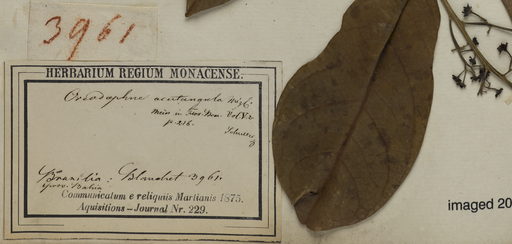 3961
HERBARIUM REGIUM MONACENSE.
Oreodaphne acutangula Miq.
Meis. in Flor. Bras. Vol V. 2
p. 216.
Brasilia: Blanchet 3961.
prov. Bahia
Communicatum e reliquiis Martianis 1875.
Aquisitions – Journal Nr. 229.
imaged 20